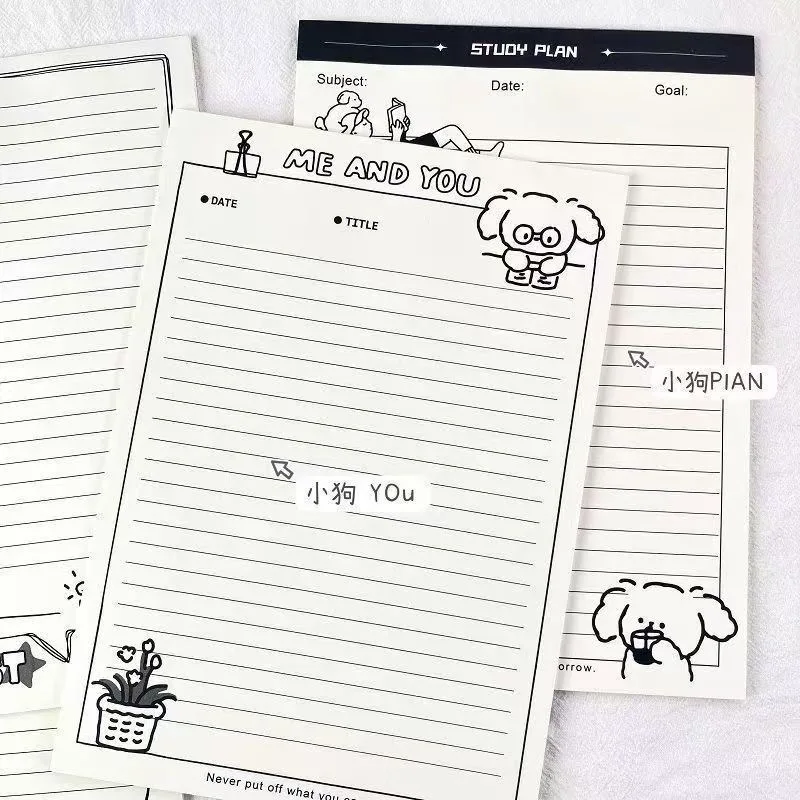 STUDY PLAN
Subject:
Date:
Goal:
ME AND YOU
DATE
TITLE
小狗PIAN
小狗 YOu
orrow.
Never put off what you